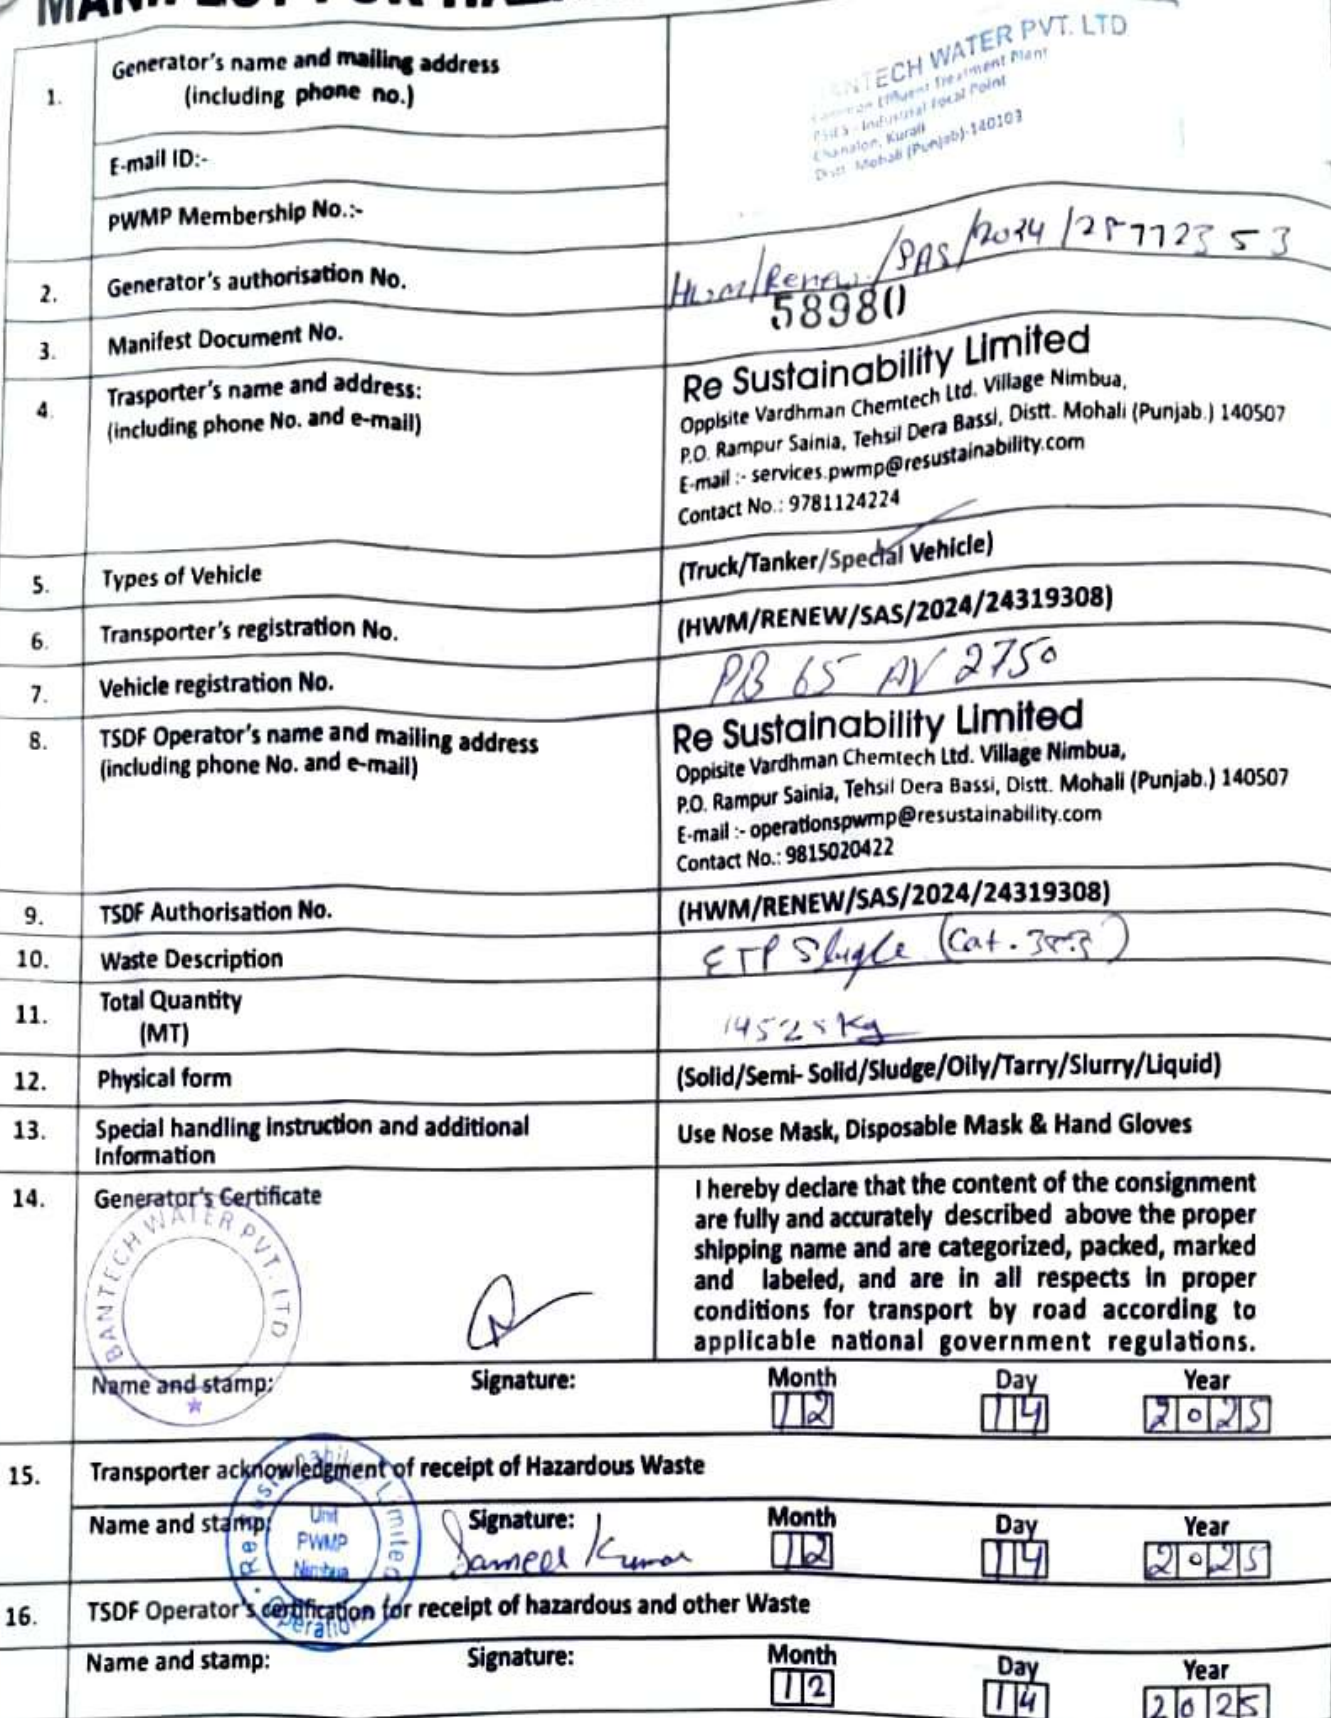 MANIFEST FOR
1. Generator's name and mailing address
(including phone no.)
ANTECH WATER PVT. LTD
Common Effluent Treatment Plant
PSIES - Industrial Focal Point
Chanalon, Kurali
Distt. Mohali (Punjab)-140103
E-mail ID:-
PWMP Membership No.:-
2. Generator's authorisation No. HWM/Renew/SAS/2024/
3. Manifest Document No. 58980
4. Trasporter's name and address:
(including phone No. and e-mail)
Re Sustainability Limited
Opplsite Vardhman Chemtech Ltd. Village Nimbua,
P.O. Rampur Sainia, Tehsil Dera Bassi, Distt. Mohali (Punjab.) 140507
E-mail :- services.pwmp@resustainability.com
Contact No.: 9781124224
5. Types of Vehicle (Truck/Tanker/Special Vehicle)
6. Transporter's registration No. (HWM/RENEW/SAS/2024/24319308)
7. Vehicle registration No. PB 65 AV 2750
8. TSDF Operator's name and mailing address
(including phone No. and e-mail)
Re Sustainability Limited
Oppisite Vardhman Chemtech Ltd. Village Nimbua,
P.O. Rampur Sainia, Tehsil Dera Bassi, Distt. Mohali (Punjab.) 140507
E-mail :- operationspwmp@resustainability.com
Contact No.: 9815020422
9. TSDF Authorisation No. (HWM/RENEW/SAS/2024/24319308)
10. Waste Description ETP Slugle (Cat.
11. Total Quantity
(MT)
Kg
12. Physical form (Solid/Semi- Solid/Sludge/Oily/Tarry/Slurry/Liquid)
13. Special handling instruction and additional
Information
Use Nose Mask, Disposable Mask & Hand Gloves
14. Generator's Certificate
I hereby declare that the content of the consignment
are fully and accurately described above the proper
shipping name and are categorized, packed, marked
and labeled, and are in all respects in proper
conditions for transport by road according to
applicable national government regulations.
BANTECH WATER PVT. LTD
Name and stamp: Signature: Month Day Year
12 14 2025
15. Transporter acknowledgment of receipt of Hazardous Waste
Name and stamp: Signature: Month Day Year
Sameer Kumar 12 14 2025
Limited
Unit
PWMP
Nimbua
Operation
16. TSDF Operator's certification for receipt of hazardous and other Waste
Name and stamp: Signature: Month Day Year
12 14 2025